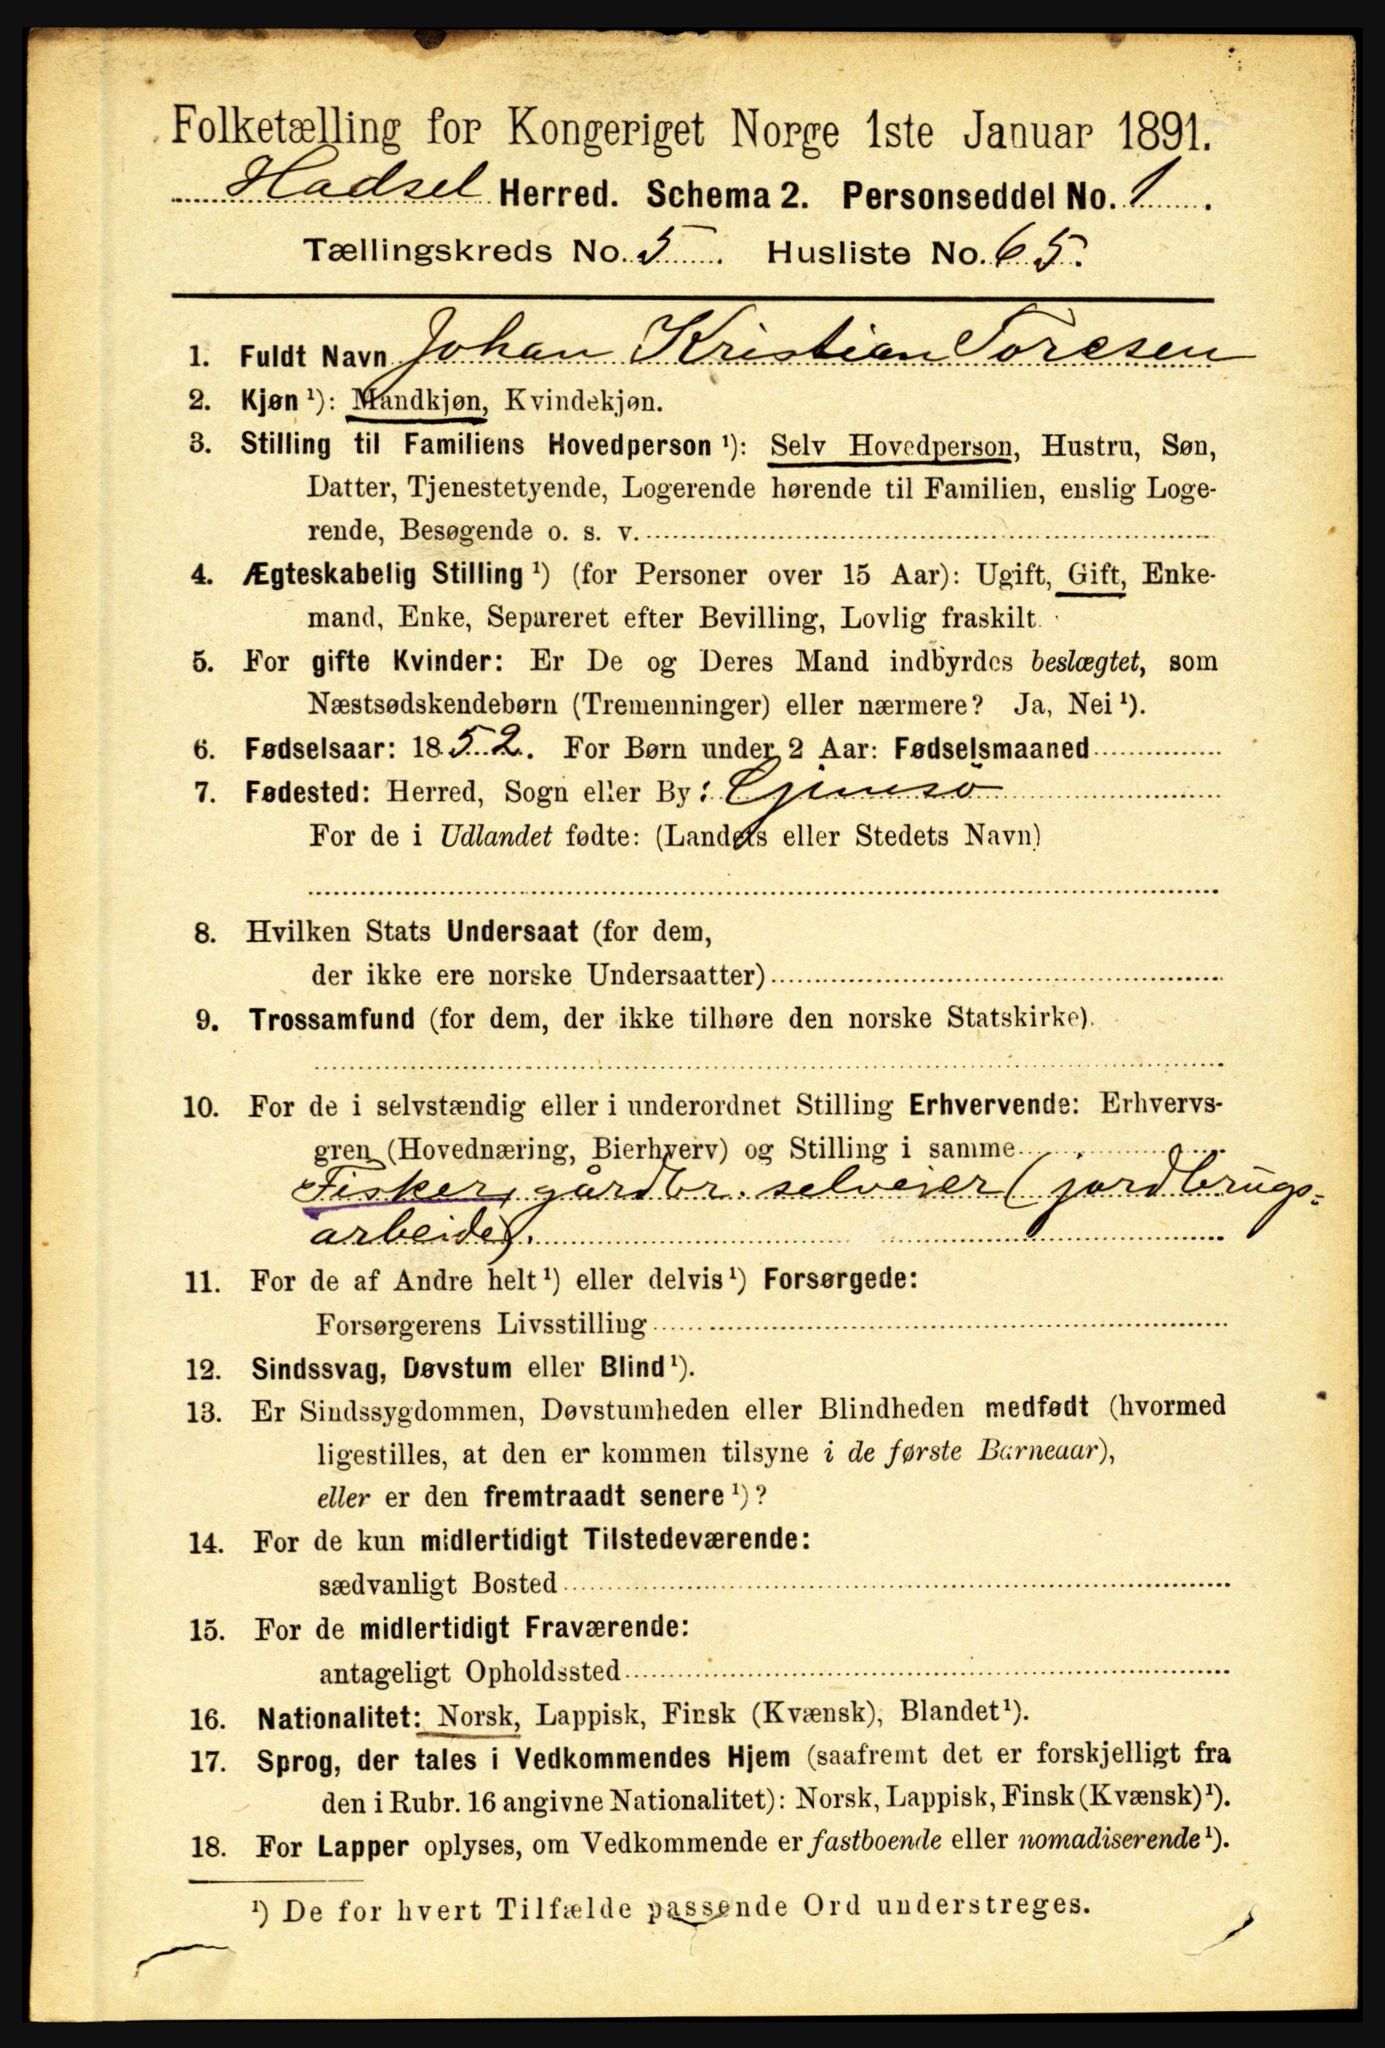 Folketælling for Kongeriget Norge 1ste Januar 1891.
Hadsel Herred. Schema 2. Personseddel No. 1.
Tællingskreds No. 5. Husliste No. 65.
1. Fuldt Navn Johan Kristian Toresen
2. Kjøn ¹): Mandkjøn, Kvindekjøn.
3. Stilling til Familiens Hovedperson ¹): Selv Hovedperson, Hustru, Søn,
Datter, Tjenestetyende, Logerende hørende til Familien, enslig Loge-
rende, Besøgende o. s. v.
4. Ægteskabelig Stilling ¹) (for Personer over 15 Aar): Ugift, Gift, Enke-
mand, Enke, Separeret efter Bevilling, Lovlig fraskilt.
5. For gifte Kvinder: Er De og Deres Mand indbyrdes beslægtet, som
Næstsødskendebørn (Tremenninger) eller nærmere? Ja, Nei ¹).
6. Fødselsaar: 1852. For Børn under 2 Aar: Fødselsmaaned
7. Fødested: Herred, Sogn eller By: Gjimsø
For de i Udlandet fødte: (Landets eller Stedets Navn)
8. Hvilken Stats Undersaat (for dem,
der ikke ere norske Undersaatter)
9. Trossamfund (for dem, der ikke tilhøre den norske Statskirke).
10. For de i selvstændig eller i underordnet Stilling Erhvervende: Erhvervs-
gren (Hovednæring, Bierhverv) og Stilling i samme
Fisker, gårdbr. selveier (jordbrugs-
arbeide).
11. For de af Andre helt ¹) eller delvis ¹) Forsørgede:
Forsørgerens Livsstilling
12. Sindssvag, Døvstum eller Blind ¹).
13. Er Sindssygdommen, Døvstumheden eller Blindheden medfødt (hvormed
ligestilles, at den er kommen tilsyne i de første Barneaar),
eller er den fremtraadt senere ¹)?
14. For de kun midlertidigt Tilstedeværende:
sædvanligt Bosted
15. For de midlertidigt Fraværende:
antageligt Opholdssted
16. Nationalitet: Norsk, Lappisk, Finsk (Kvænsk), Blandet ¹).
17. Sprog, der tales i Vedkommendes Hjem (saafremt det er forskjelligt fra
den i Rubr. 16 angivne Nationalitet): Norsk, Lappisk, Finsk (Kvænsk) ¹).
18. For Lapper oplyses, om Vedkommende er fastboende eller nomadiserende ¹).
¹) De for hvert Tilfælde passende Ord understreges.